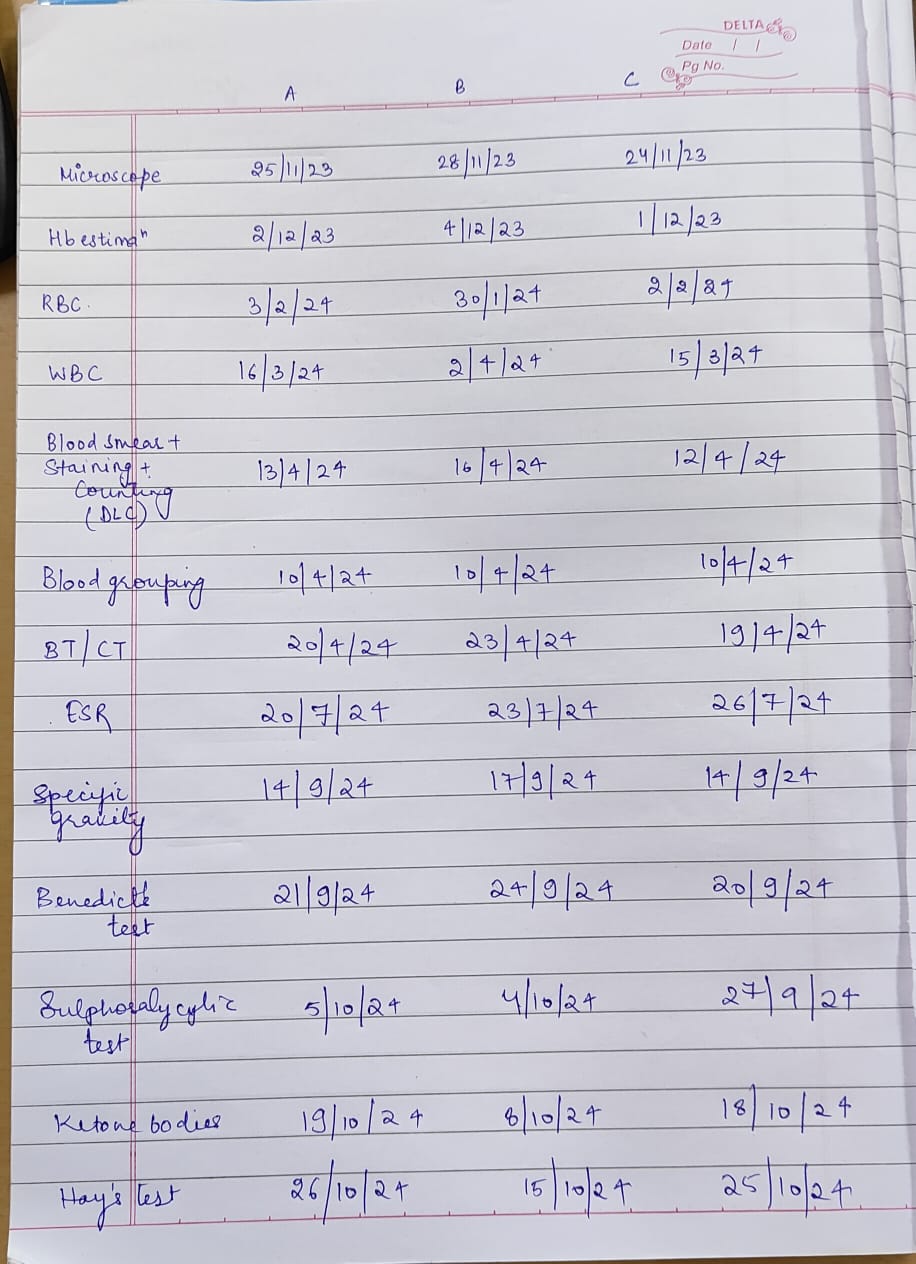 DELTA
Date / /
Pg No.
A B C
Microscope 25/11/23 28/11/23 24/11/23
Hb estimaⁿ 2/12/23 4/12/23 1/12/23
RBC. 3/2/24 30/1/24 2/2/24
WBC 16/3/24 2/4/24 15/3/24
Blood smear +
Staining + 13/4/24 16/4/24 12/4/24
Counting
(DLC)
Blood grouping 10/4/24 10/4/24 10/4/24
BT/CT 20/4/24 23/4/24 19/4/24
ESR 20/7/24 23/7/24 26/7/24
Specific 14/9/24 17/9/24 14/9/24
gravity
Benedicts 21/9/24 24/9/24 20/9/24
test
Sulphosalycylic 5/10/24 4/10/24 27/9/24
test
Ketone bodies 19/10/24 8/10/24 18/10/24
Hay's test 26/10/24 15/10/24 25/10/24